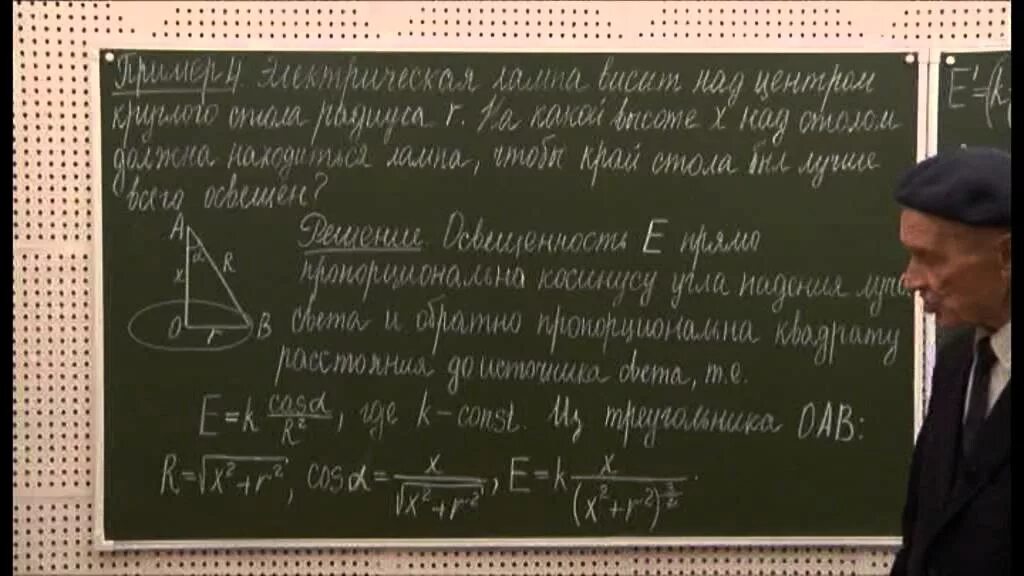 Пример 4. Электрическая лампа висит над центром
круглого стола радиуса r. На какой высоте x над столом
должна находиться лампа, чтобы край стола был лучше
всего освещен?
A
α
x
R
O
r
B
Решение. Освещенность E прямо
пропорциональна косинусу угла падения луча
света и обратно пропорциональна квадрату
расстояния до источника света, т.е.
E = k cosα/R², где k – const. Из треугольника OAB:
R = √(x² + r²), cosα = x/√(x² + r²), E = k x/(x² + r²)^(3/2).
E' = (k